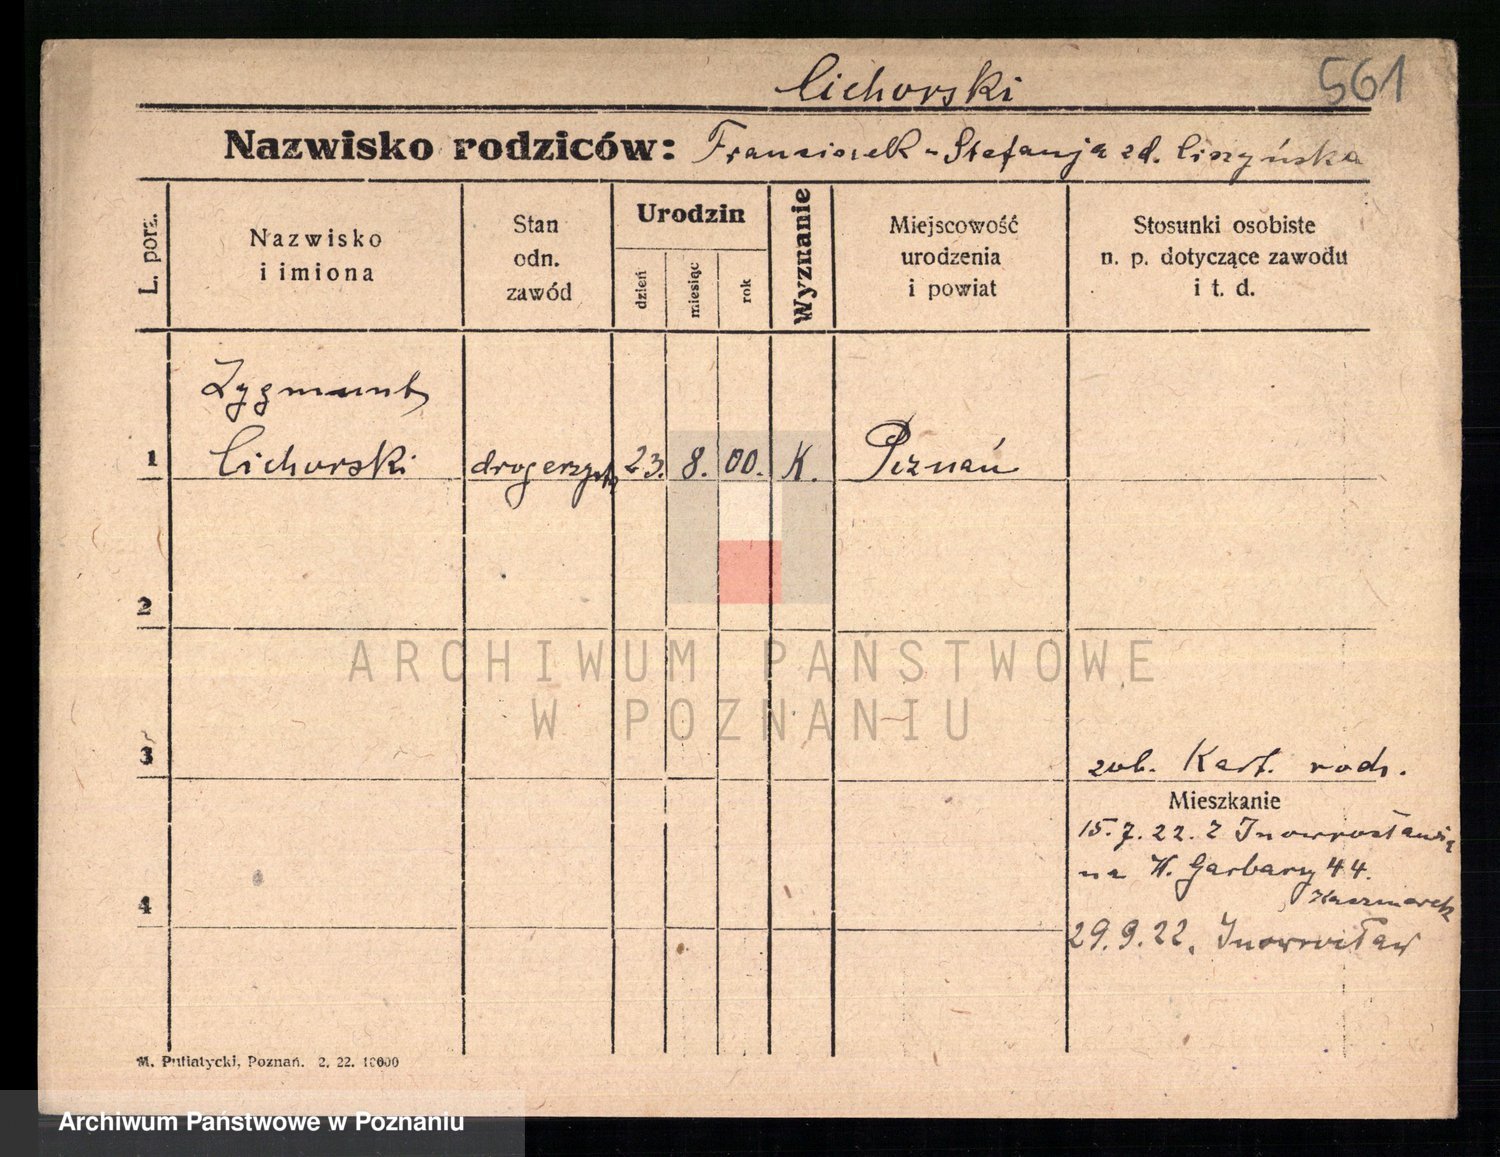 Cichorski
561
Nazwisko rodziców: Franciszek - Stefanja zd. Ciszyńska
L. porz.
Nazwisko
i imiona
Stan
odn.
zawód
Urodzin
dzień
miesiąc
rok
Wyznanie
Miejscowość
urodzenia
i powiat
Stosunki osobiste
n. p. dotyczące zawodu
i t. d.
Zygmunt
1 Cichorski drogerzysta 23. 8. 00. K. Poznań
2
ARCHIWUM PAŃSTWOWE
W POZNANIU
3
zob. Kart. rodz.
Mieszkanie
15. 7. 22. z Inowrocławia
na W. Garbary 44.
Kaczmarek
4
29. 9. 22. Inowrocław
M. Putiatycki, Poznań. 2. 22. 10000
Archiwum Państwowe w Poznaniu